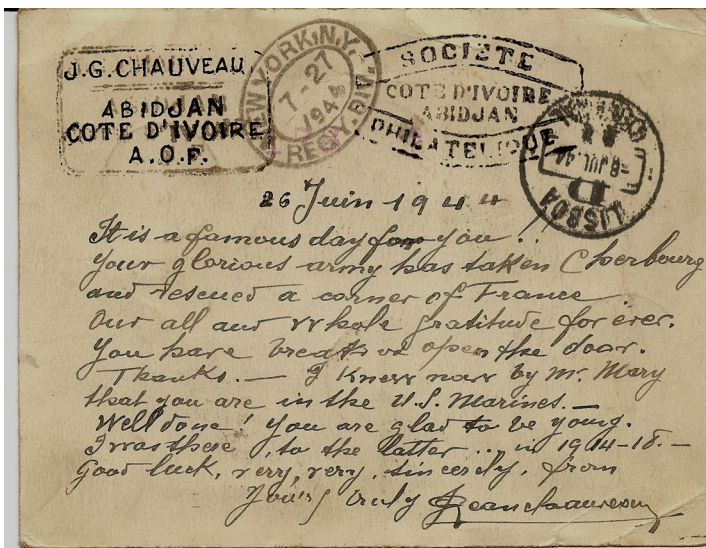 J.G. CHAUVEAU
ABIDJAN
COTE D'IVOIRE
A.O.F.
NEW YORK, N.Y.
7-27
1944
REG'Y. DIV.
SOCIÉTÉ
COTE D'IVOIRE
ABIDJAN
PHILATELIQUE
-8.JUL.44
LISBOA
26 Juin 1944
It is a famous day for you!!
Your glorious army has taken Cherbourg
and rescued a corner of France
Our all and whole gratitude for ever.
You have break us open the door.
Thanks. — I know now by Mr. Mary
that you are in the U.S. Marines. —
Well done! You are glad to be young.
I was there, to the latter... in 1914-18. —
Good luck, very, very, sincerely, from
Yours truly Jean Chauveau